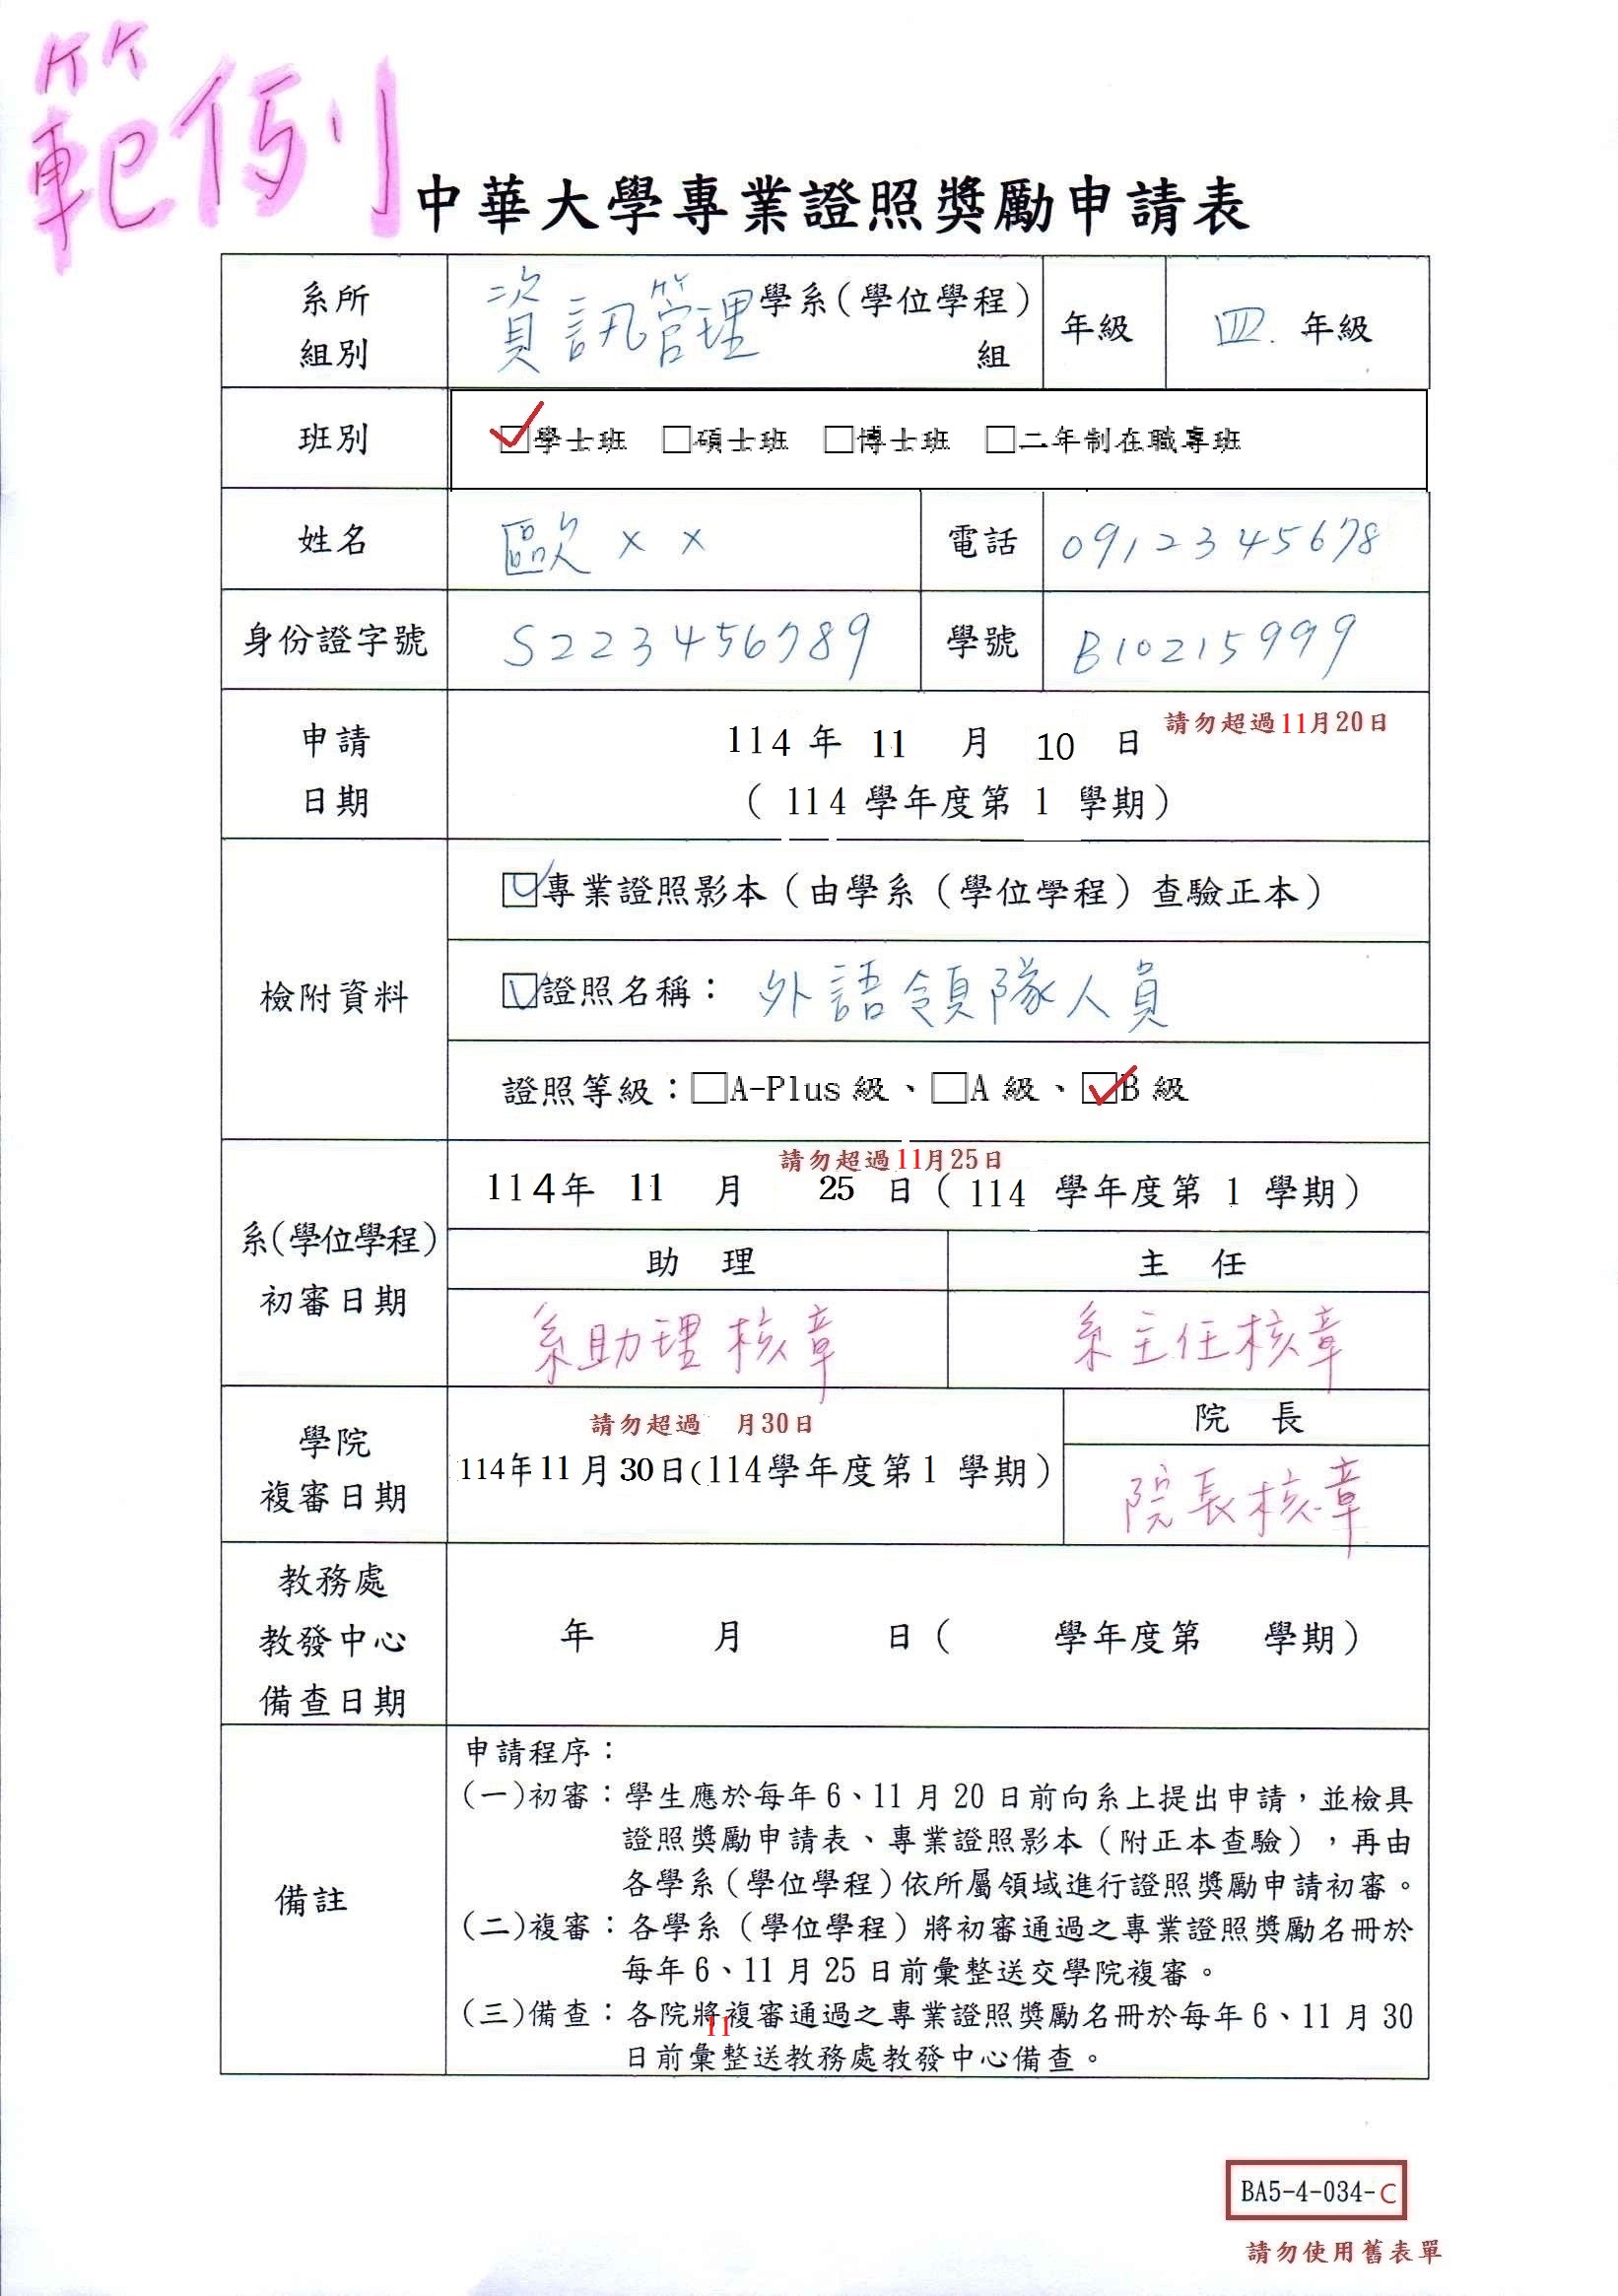 範例
中華大學專業證照獎勵申請表
系所組別 資訊管理學系(學位學程) 組 年級 四 年級
班別 學士班 碩士班 博士班 二年制在職專班
姓名 歐×× 電話 0912345678
身份證字號 S223456789 學號 B10215999
請勿超過11月20日
申請日期 114 年 11 月 10 日
( 114 學年度第 1 學期)
檢附資料
專業證照影本(由學系(學位學程)查驗正本)
證照名稱: 外語領隊人員
證照等級:A-Plus 級、A 級、B 級
請勿超過11月25日
系(學位學程)初審日期 114年 11 月 25 日( 114 學年度第 1 學期)
助 理 主 任
系助理核章 系主任核章
請勿超過 月30日 院 長
學院複審日期 114年11月30日(114學年度第1 學期)
院長核章
教務處教發中心備查日期 年 月 日( 學年度第 學期)
備註
申請程序:
(一)初審:學生應於每年 6、11 月 20 日前向系上提出申請,並檢具
證照獎勵申請表、專業證照影本(附正本查驗),再由
各學系(學位學程)依所屬領域進行證照獎勵申請初審。
(二)複審:各學系(學位學程)將初審通過之專業證照獎勵名冊於
每年 6、11 月 25 日前彙整送交學院複審。
(三)備查:各院將複審通過之專業證照獎勵名冊於每年 6、11 月 30
11
日前彙整送教務處教發中心備查。
BA5-4-034-C
請勿使用舊表單